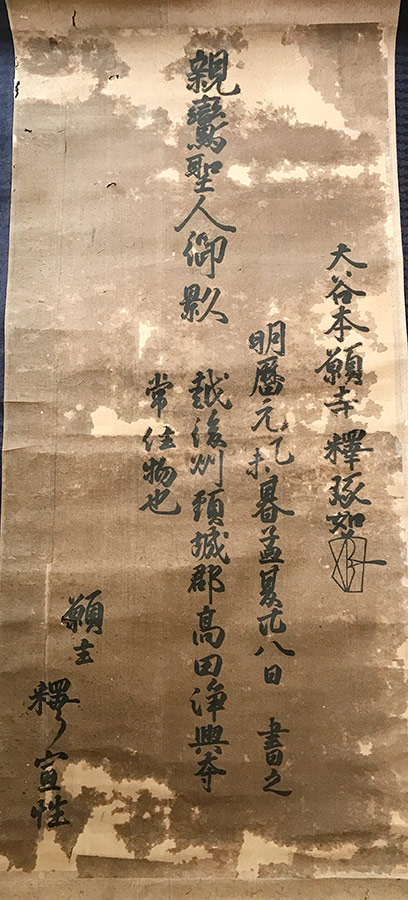 大谷本願寺釋琢如
明曆元乙未暮孟夏廿八日 書之
親鸞聖人御影
越後州頸城郡高田淨興寺
常住物也
願主
釋宣性